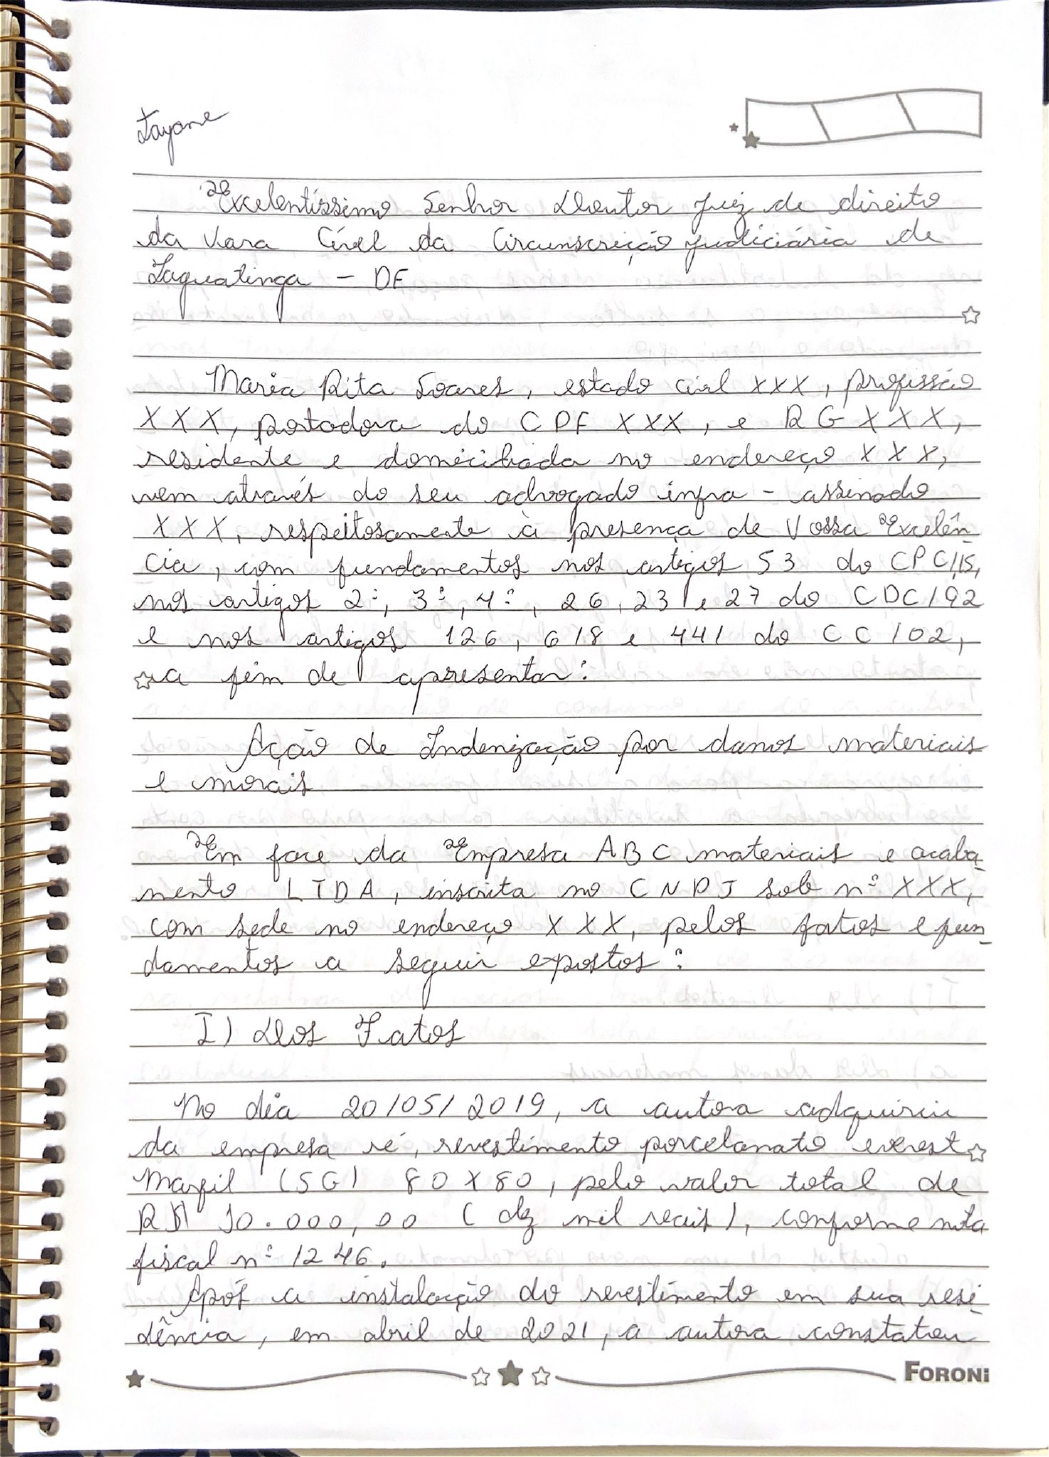 Tayane
Excelentíssimo Senhor Doutor Juiz de direito
da Vara Cível da Circunscrição Judiciária de
Taguatinga - DF
Maria Rita Soares, estado civil XXX, profissão
XXX, portadora do CPF XXX, e RG XXX,
residente e domiciliada no endereço XXX,
vem através do seu advogado infra-assinado
XXX, respeitosamente à presença de Vossa Excelên-
cia, com fundamentos nos artigos 53 do CPC/15,
nos artigos 2º, 3º, 4º, 26, 23 e 27 do CDC/92
e nos artigos 126, 618 e 441 do CC/02,
a fim de apresentar:
Ação de Indenização por danos materiais
e morais
Em face da Empresa ABC materiais e acaba-
mento LTDA, inscrita no CNPJ sob nº XXX,
com sede no endereço XXX, pelos fatos e fun-
damentos a seguir expostos:
I) Dos Fatos
No dia 20/05/2019, a autora adquiriu
da empresa ré, revestimento porcelanato everest
Marfil (SG) 80X80, pelo valor total de
R$ 10.000,00 (dez mil reais), conforme nota
fiscal nº 1246.
Após a instalação do revestimento em sua resi-
dência, em abril de 2021, a autora constatou
FORONI